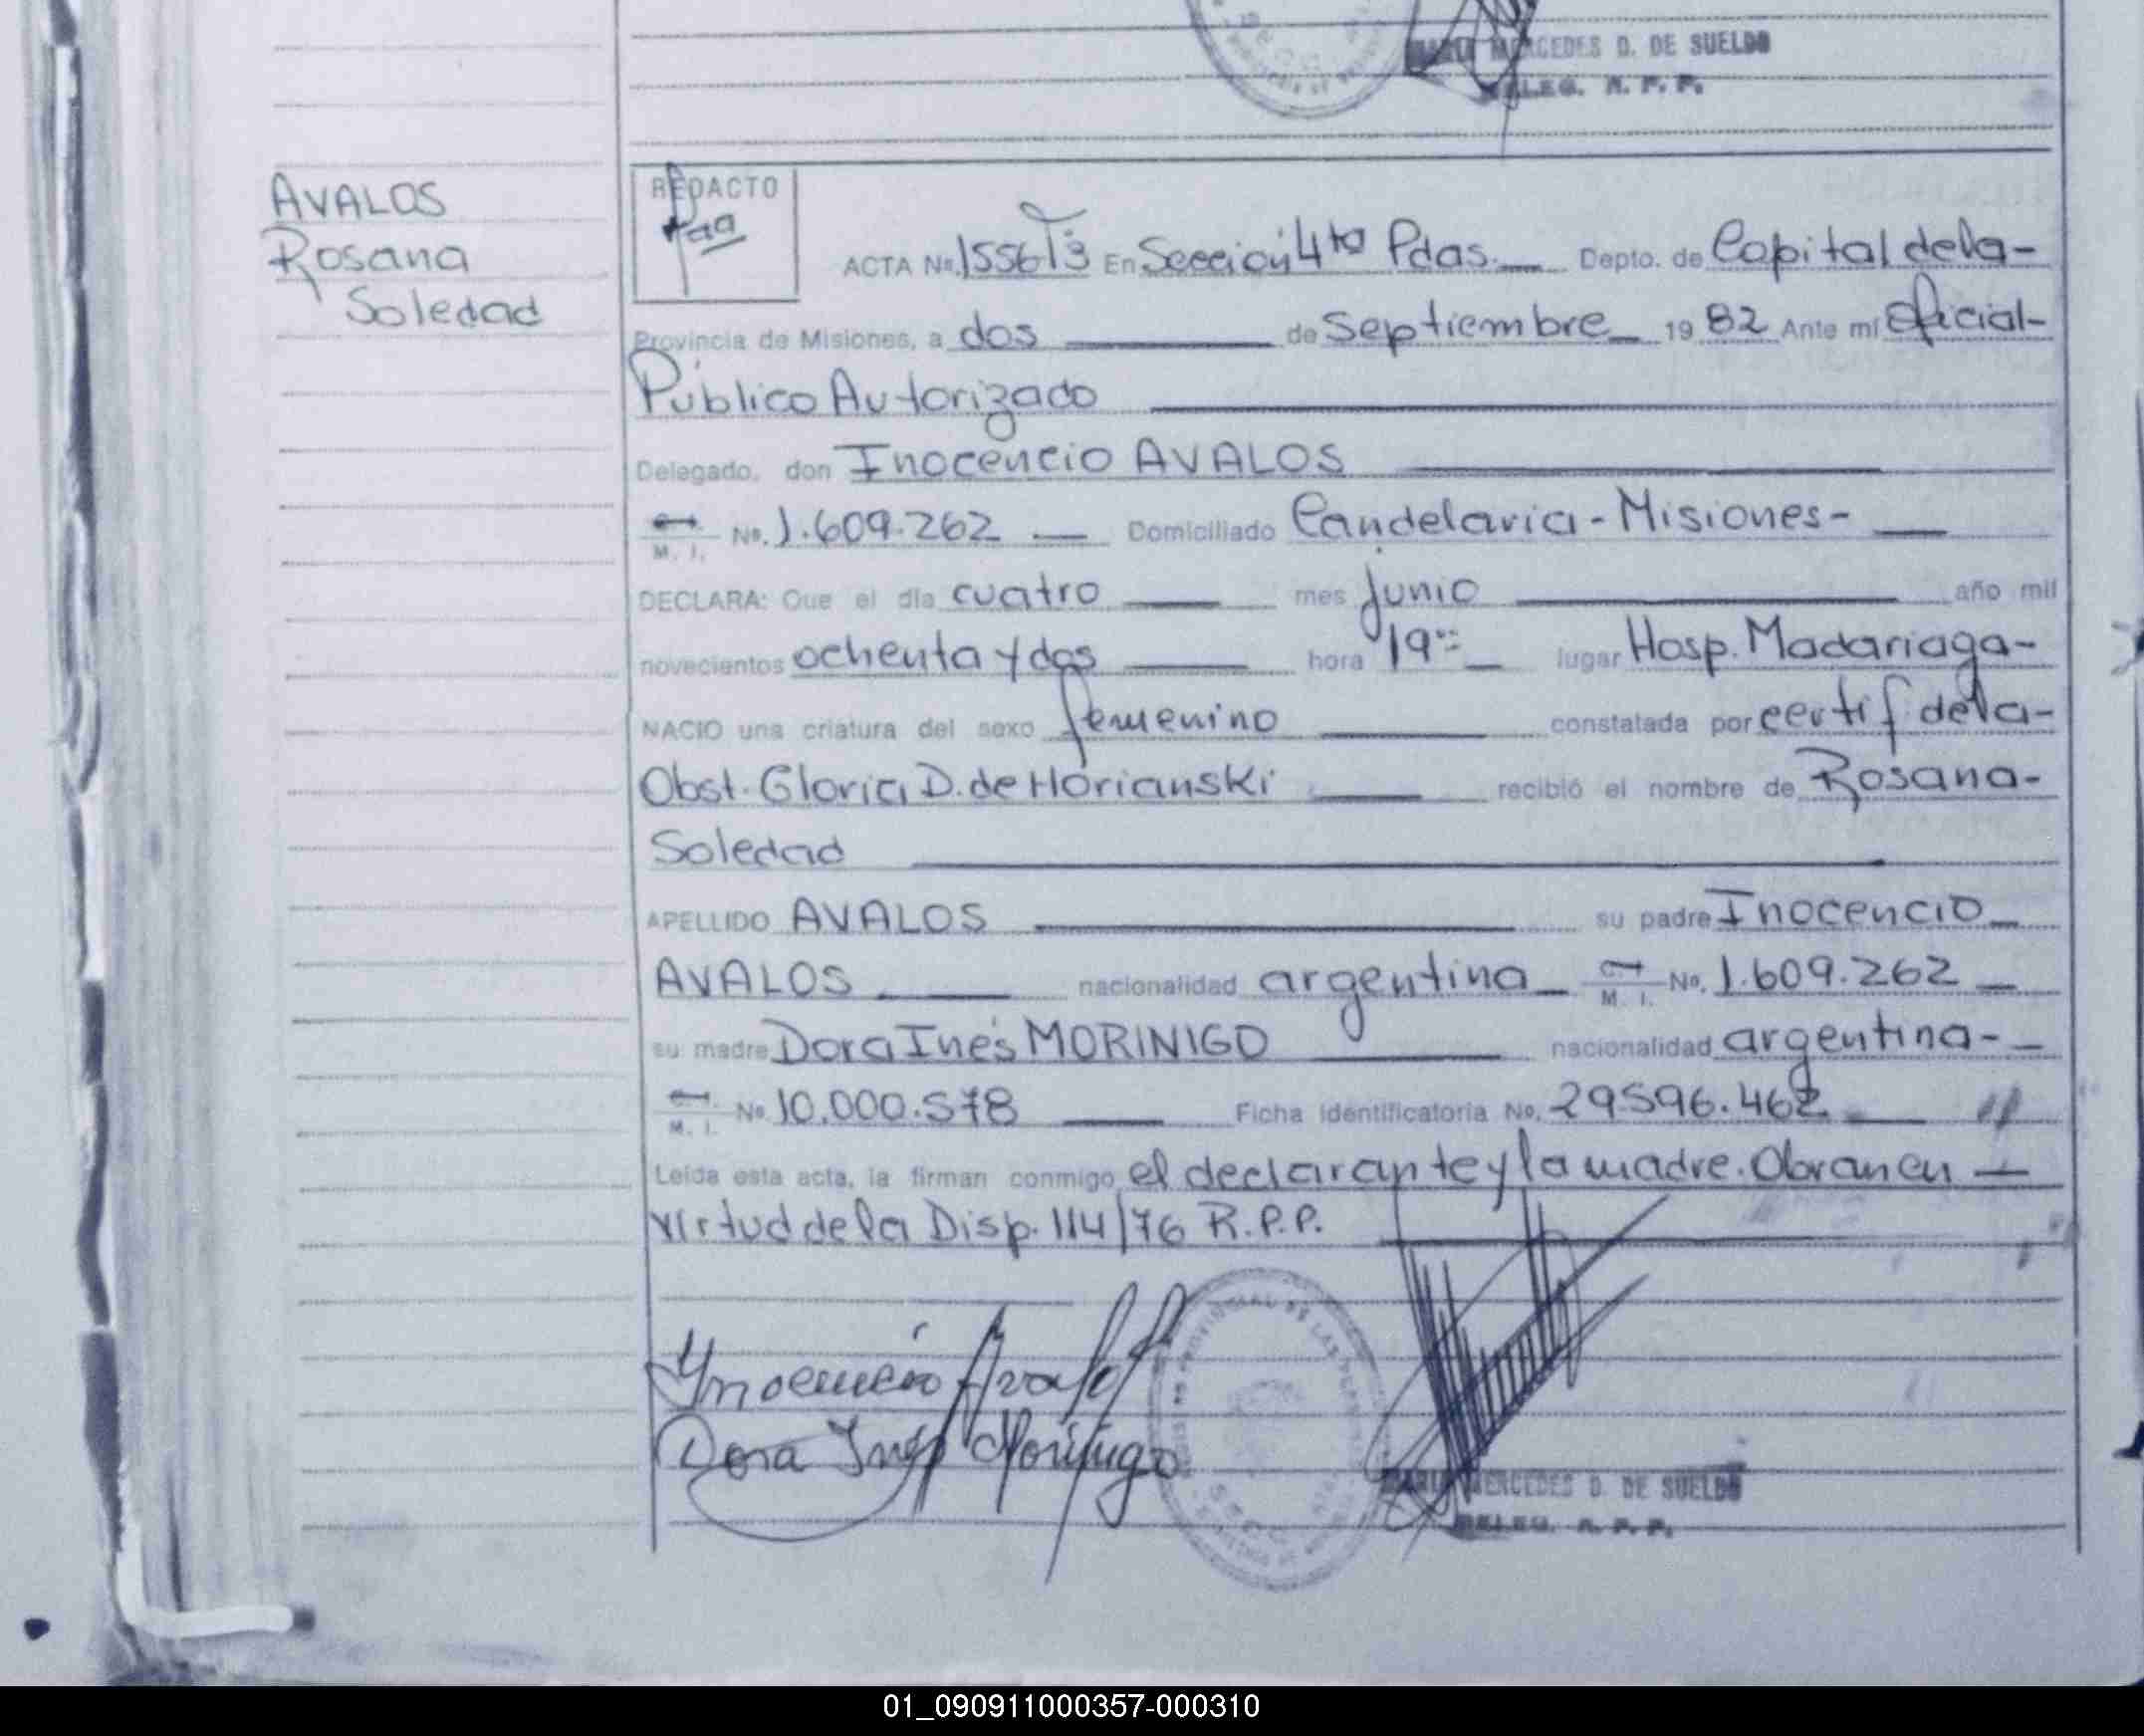 MARIA MERCEDES D. DE SUELDO
DELEG. R. P. P.
AVALOS
Rosana
Soledad
REDACTO
ACTA Nº. 1556 T3 En Sección 4ta Pdas. Depto. de Capital de la-
Provincia de Misiones, a dos de Septiembre 19 82 Ante mí Oficial-
Público Autorizado
Delegado, don Inocencio AVALOS
M. I. Nº. 1.609.262 Domiciliado Candelaria - Misiones-
DECLARA: Que el día cuatro mes junio año mil
novecientos ochenta y dos hora 19 lugar Hosp. Madariaga-
NACIO una criatura del sexo femenino constatada por certif. de la-
Obst. Gloria D. de Horianski recibió el nombre de Rosana-
Soledad
APELLIDO AVALOS su padre Inocencio
AVALOS nacionalidad argentina M. I. No. 1.609.262
su madre Dora Inés MORINIGO nacionalidad argentina-
M. I. Nº 10.000.578 Ficha identificatoria No. 29.596.462
Leída esta acta, la firman conmigo el declarante y la madre. Obran en
virtud de la Disp. 114/76 R.P.P.
Inocencio Avalos
Dora Inés Morinigo
MARIA MERCEDES D. DE SUELDO
DELEG. R. P. P.
01_090911000357-000310